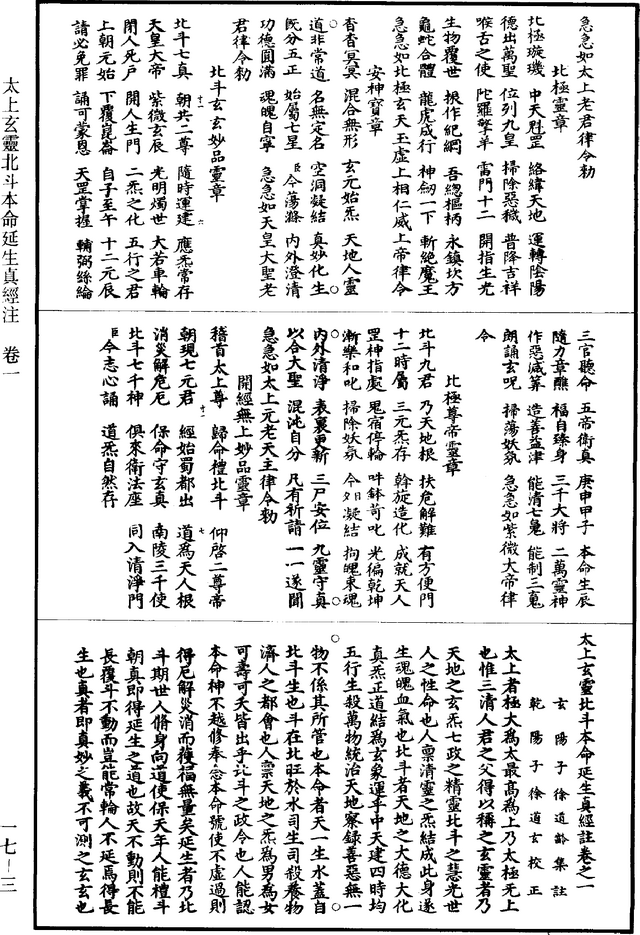 急急如太上老君律令勑
北極靈章
北極璇璣　中天魁罡　絡緯天地　運轉陰陽
德出萬聖　位列九皇　掃除惡穢　普降吉祥
喉舌之使　陀羅擎羊　雷門十二　開指生光
生物覆世　根作紀綱　吾總樞柄　永鎮坎方
龜蛇合體　龍虎成行　神劒一下　斬絕魔王
急急如北極玄天玉虛上相仁威上帝律令
安神寳章
杳杳冥冥　混合無形　玄元始炁　天地人靈
道非常道　名無定名　空洞凝結　真妙化生
旣分五正　始屬七星　臣今蕩滌　內外澄清
功德圓滿　魂魄自寧　急急如天皇大聖老
君律令勑
北斗玄玄妙品靈章
北斗七真　朝共二尊　隨時運建　應炁常存
天皇大帝　紫微玄辰　光明燭世　大若車輪
閉人死戶　開人生門　二炁之化　五行之君
上朝元始　下覆崑崙　自子至午　十二元辰
請必免罪　誦可蒙恩　天罡掌握　輔弼絲綸
三官聽命　五帝衛真　庚申甲子　本命生辰
隨力章醮　福自臻身　三千大將　二萬靈神
作惡減筭　造善益津　能清七䰟　能制三䰟
朗誦玄呪　掃蕩妖氛　急急如紫微大帝律
令
北極尊帝靈章
北斗九君　乃天地根　扶危解難　有方便門
十二時屬　三元炁存　斡旋造化　成就天人
罡神指處　鬼宿停輪　吽鉢苛叱　光徧乾坤
漸樂和叱　掃除妖氛　今日凝結　拘魄束魂
內外清淨　表裏更新　三尸安位　九靈守真
以合大聖　混沌自分　凡有祈請　一一遂聞
急急如太上元老天主律令勑
開經無上妙品靈章
稽首太上尊　歸命禮北斗　仰啓二尊帝
朝現七元君　經始蜀都出　道爲天人根
消災解危厄　保命守玄真　南陵三千使
北斗七千神　俱來衛法座　同入清淨門
臣今志心誦　道炁自然存
太上玄靈北斗本命延生真經註卷之一
玄陽子徐道齡集註
乾陽子徐道玄校正
太上者極大為太最髙為上乃太極无上
也惟三清人君之父得以稱之玄靈者乃
天地之玄炁七政之精靈北斗之慧光世
人之性命也人禀清靈之炁結成此身遂
生魂魄血氣也北斗者天地之大德大化
真炁正道結為玄象運乎中天建四時均
五行生殺萬物統治天地察録善惡無一
物不係其所管也本命者天一生水蓋自
北斗生也斗在北旺於水司生司殺養物
濟人之都會也人禀天地之炁為男為女
可壽可夭皆出乎北斗之政令也人能認
本命神不越修奉念本命號使不虛過則
得厄解災消而獲福無量矣延生者乃北
斗期世人脩身向道使保天年人能禮斗
朝真即得延生之道也故天不動則不能
長覆斗不動而豈能常輪人不延焉得長
生也真者即真妙之義不可測之玄玄也
太上玄靈北斗本命延生真經注　卷一
一七—三